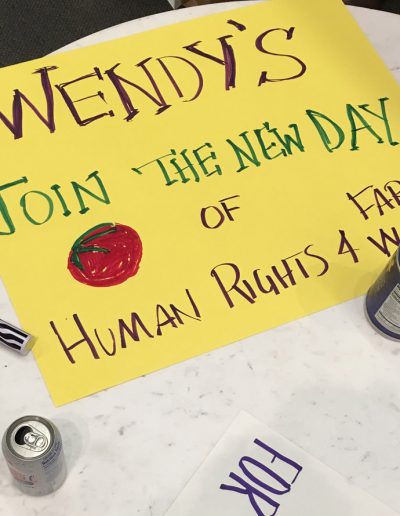 WENDY'S
JOIN THE NEW DAY
OF
HUMAN RIGHTS 4
FOR